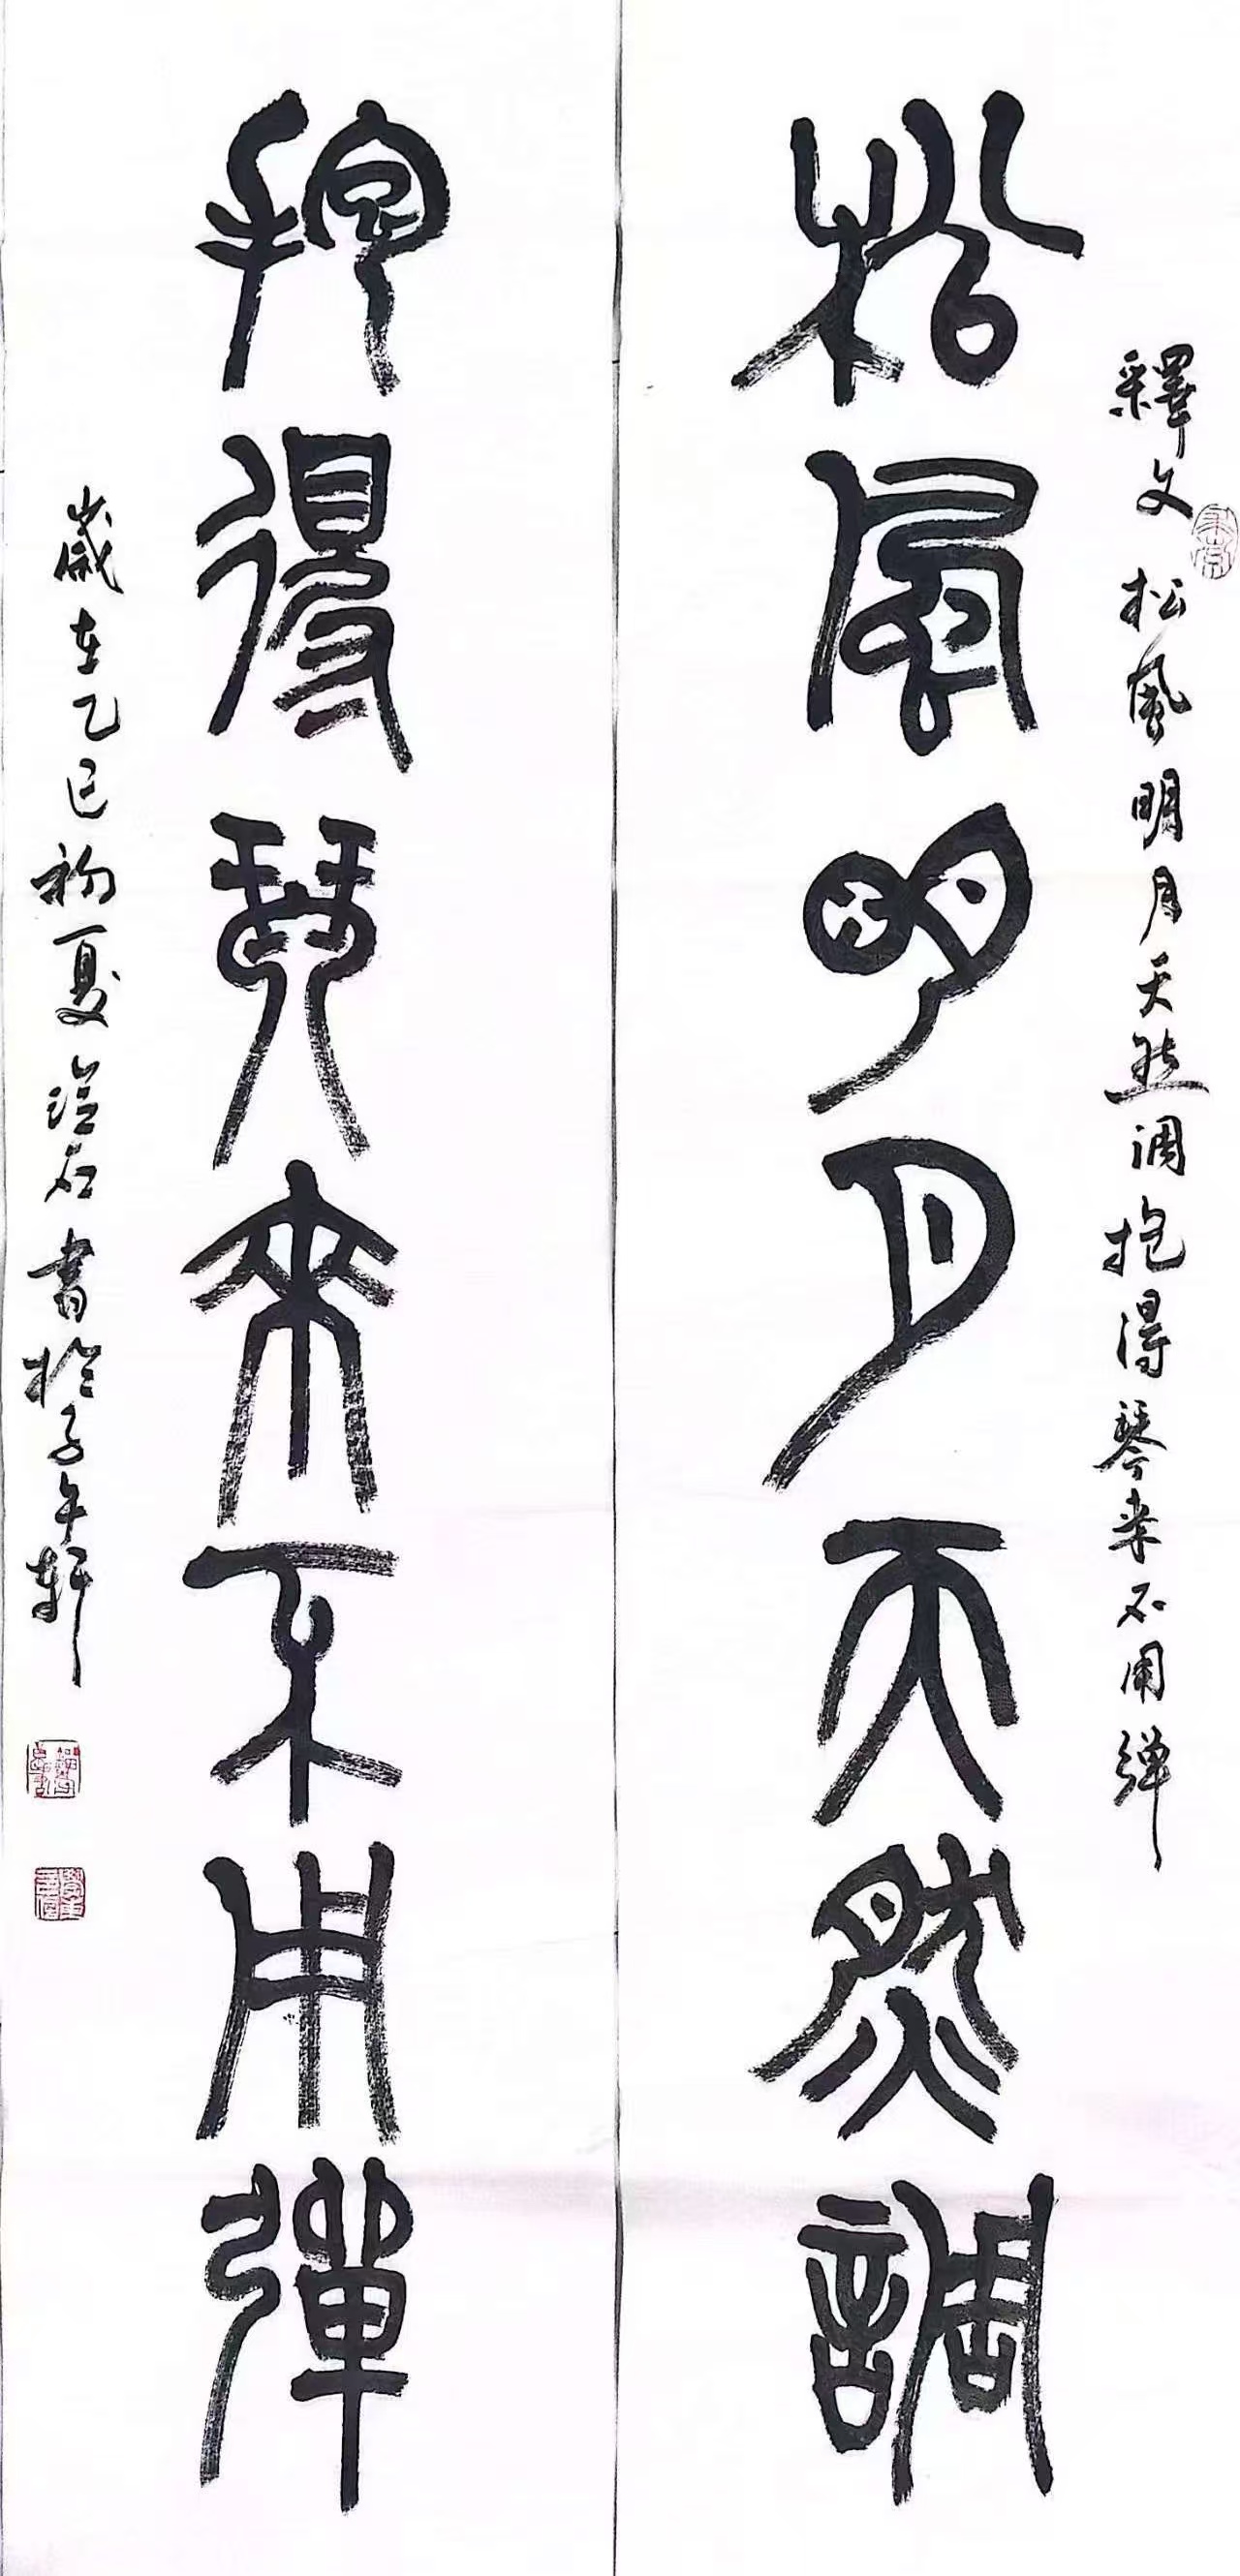 釋文 松風明月天然調抱得琴来不用彈
松風明月天然調
抱得琴來不用彈
歲在乙巳初夏 石書於子午軒